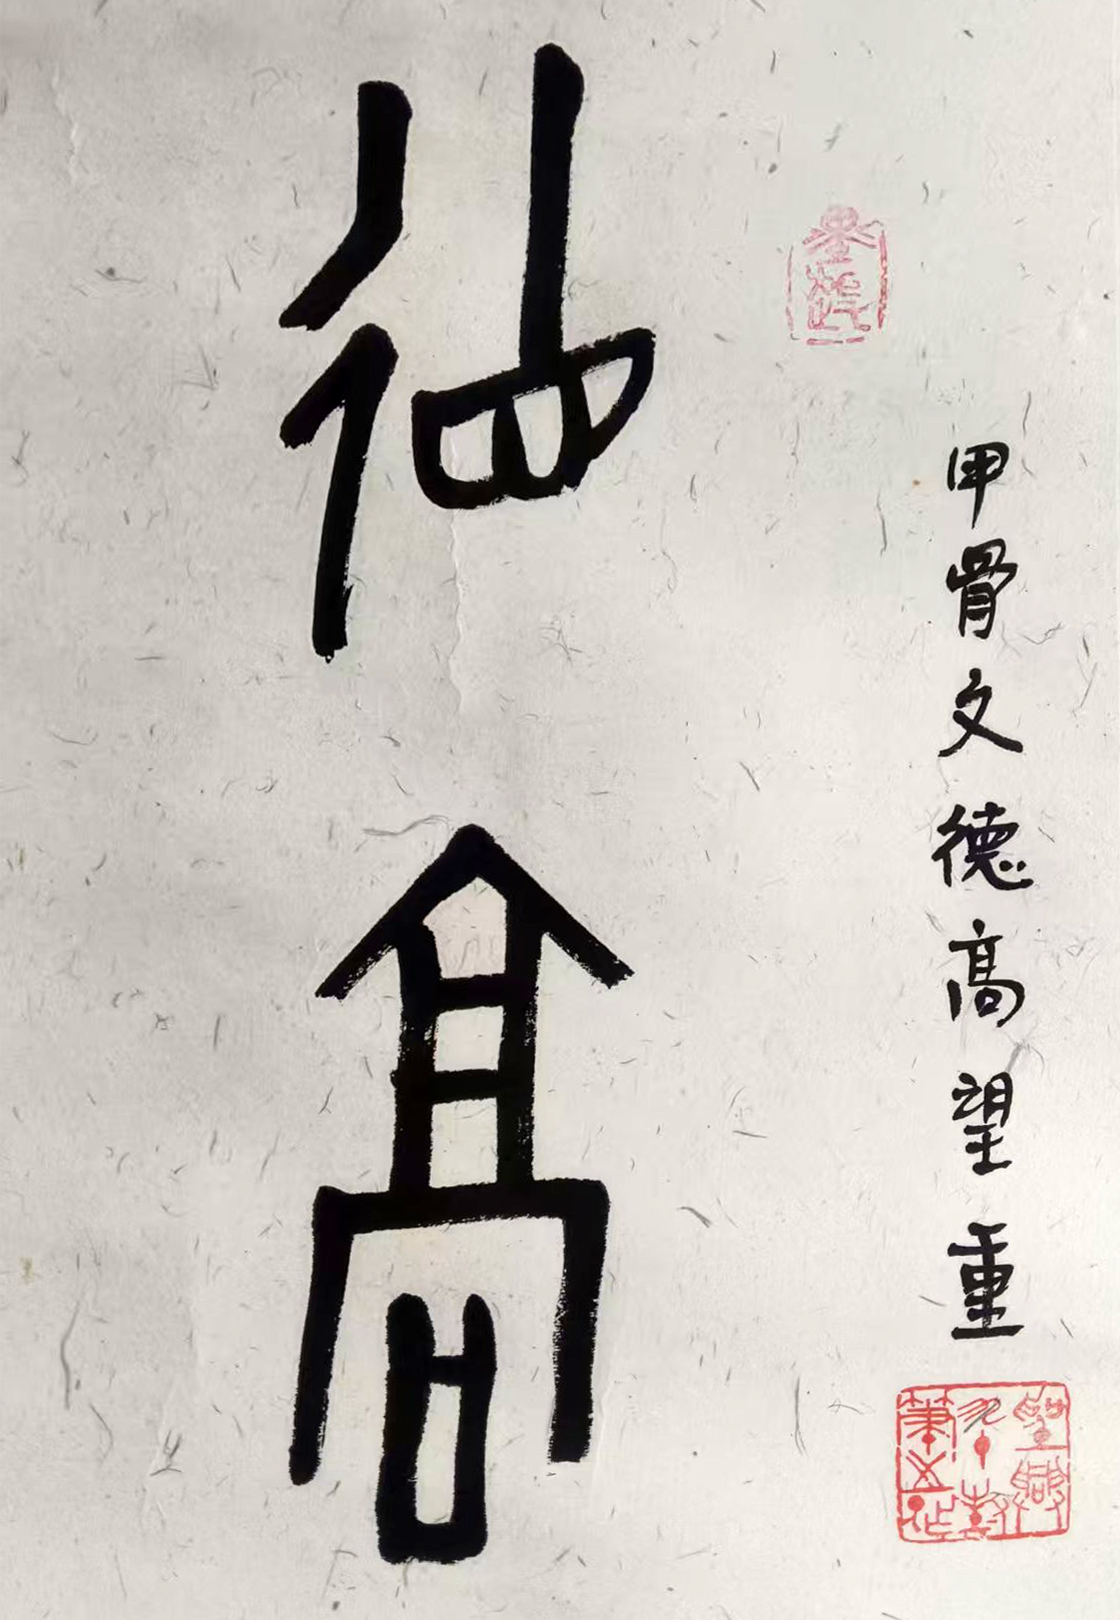 甲骨文德高望重
德高